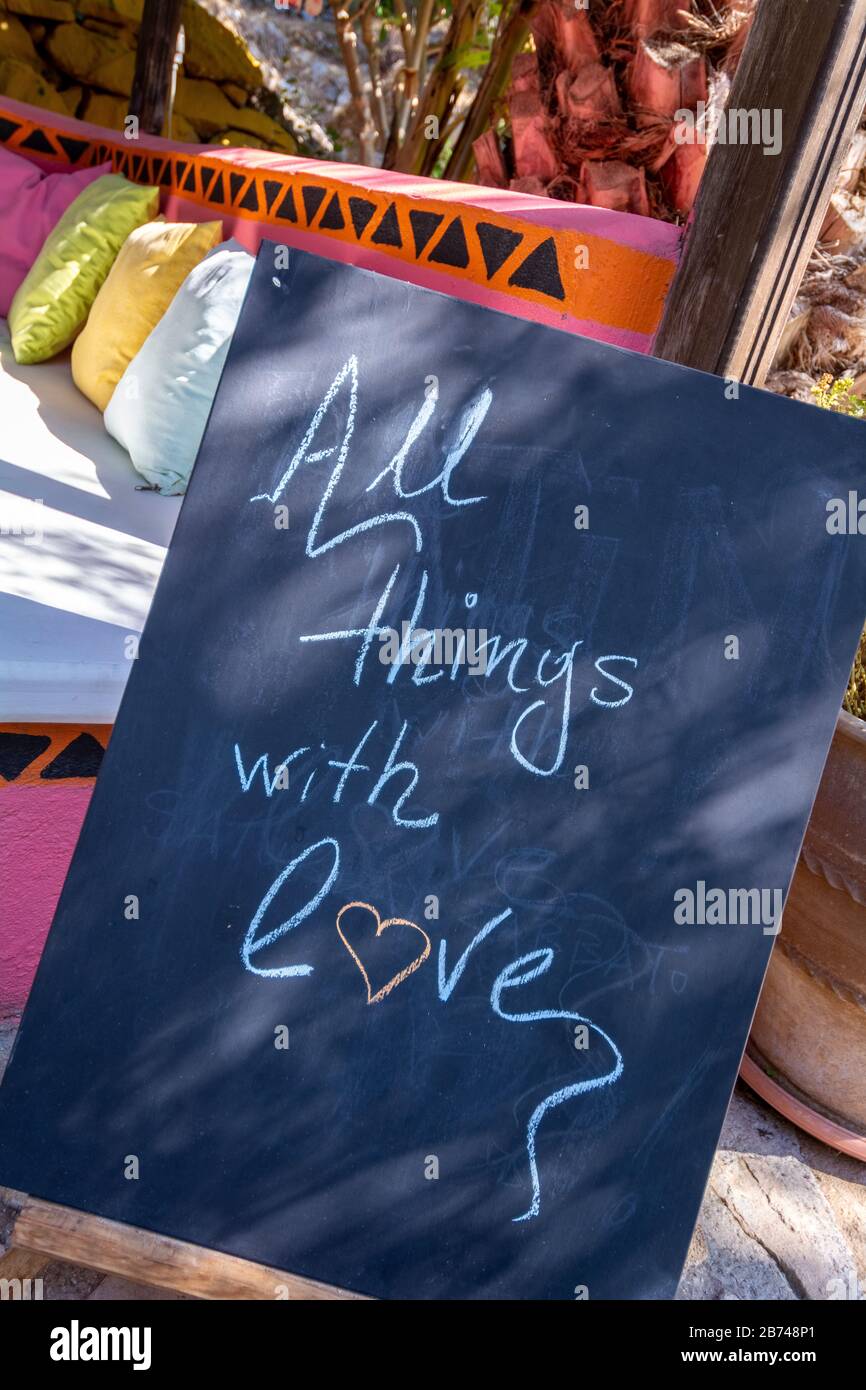 All
things
with
love
alamy
alamy
alamy
alamy
Image ID: 2B748P1
www.alamy.com